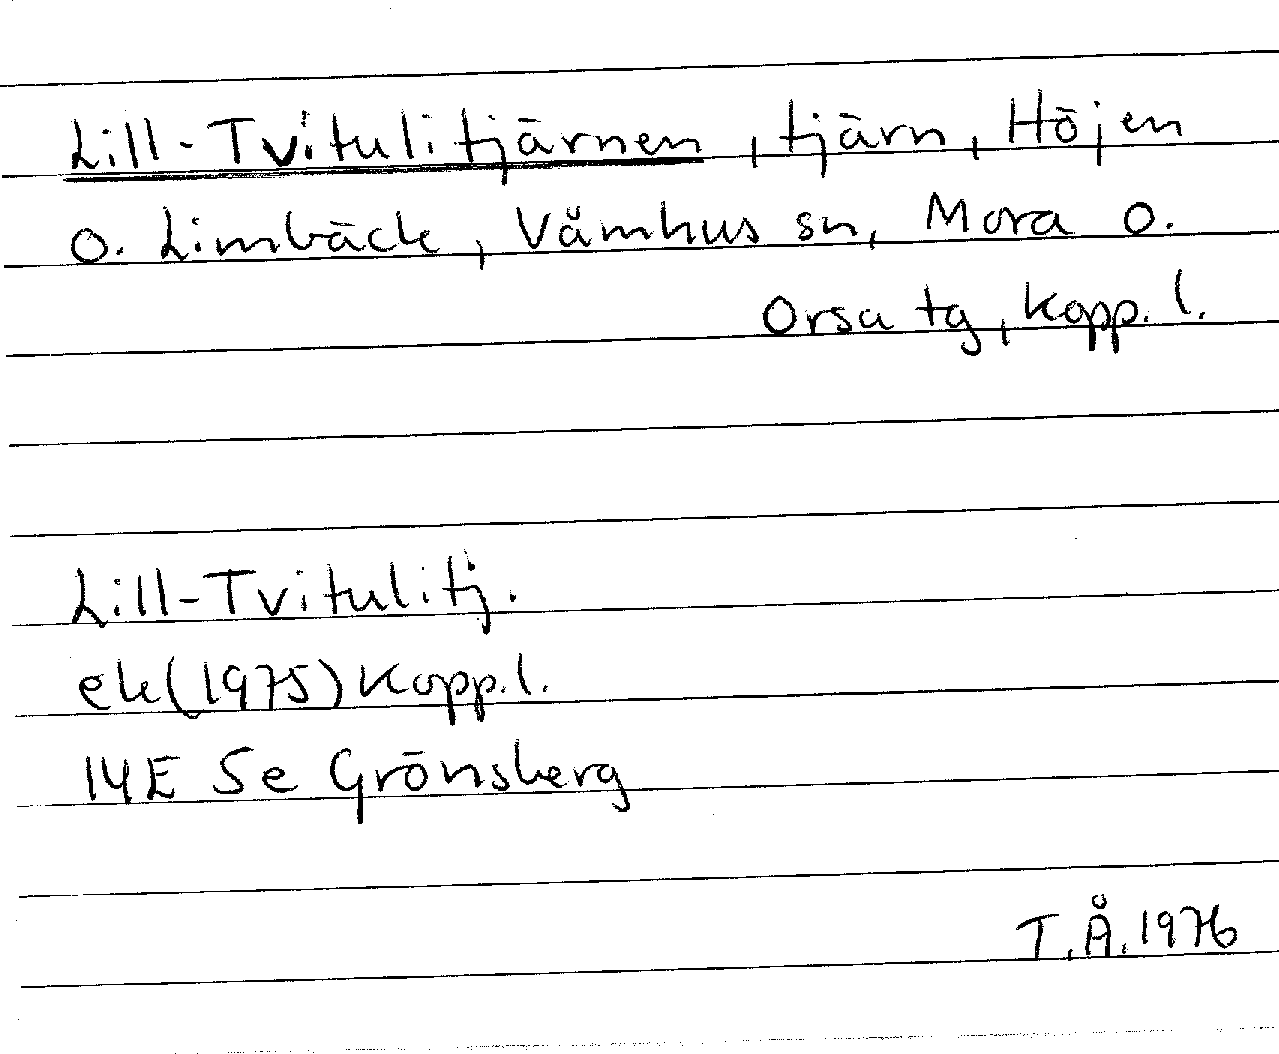 Lill-Tvitulitjärnen, tjärn, Höjen
o. Limbäck, Våmhus sn, Mora o.
Orsa tg, Kopp. l.
Lill-Tvitulitj.
ek(1975) Kopp. l.
14E Se Grönsberg
T.Å. 1976